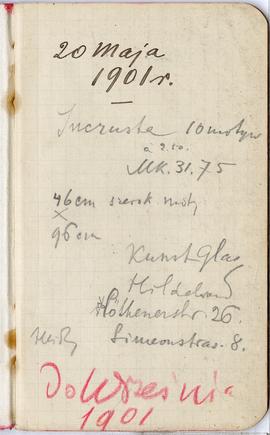 20 Maja
1901 r.
Incrusta 10 motyw
a 2.50.
MK. 31.75
46 cm szerok moty
×
96 cm
Kunst Glas
Hildebrand
Köthenerstr. 26.
Simeonstras. 8.
Do Września
1901